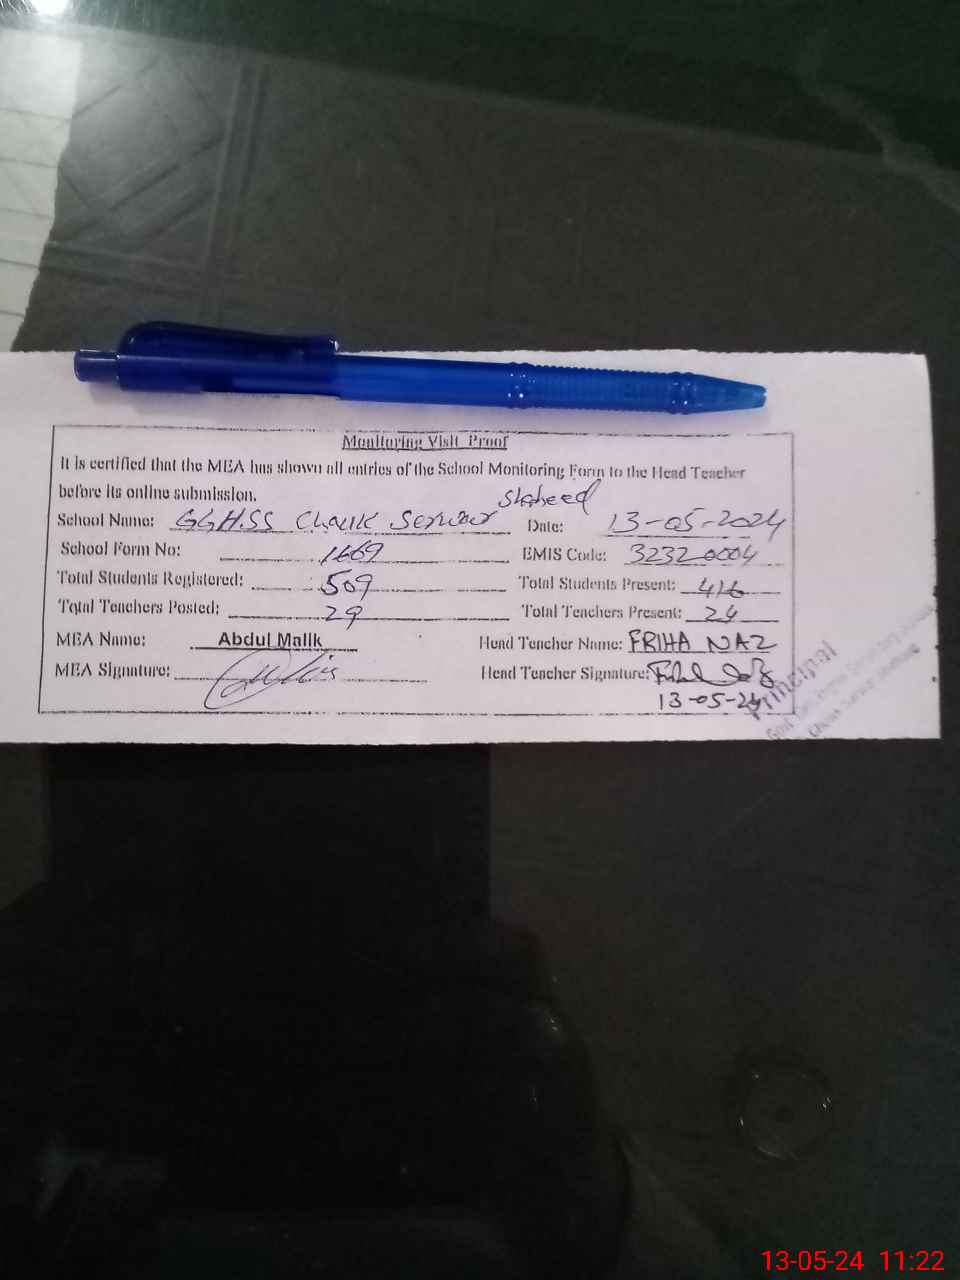 Monitoring Visit Proof
It is certified that the MEA has shown all entries of the School Monitoring Form to the Head Teacher
before its online submission.
shaheed
School Name: GGHSS Chowk Serwar Date: 13-05-2024
School Form No: 1669 EMIS Code: 32320004
Total Students Registered: 509 Total Students Present: 416
Total Teachers Posted: 29 Total Teachers Present: 24
MEA Name: Abdul Malik Head Teacher Name: FRIHA NAZ
MEA Signature: Head Teacher Signature:
13-05-24
Principal
13-05-24 11:22